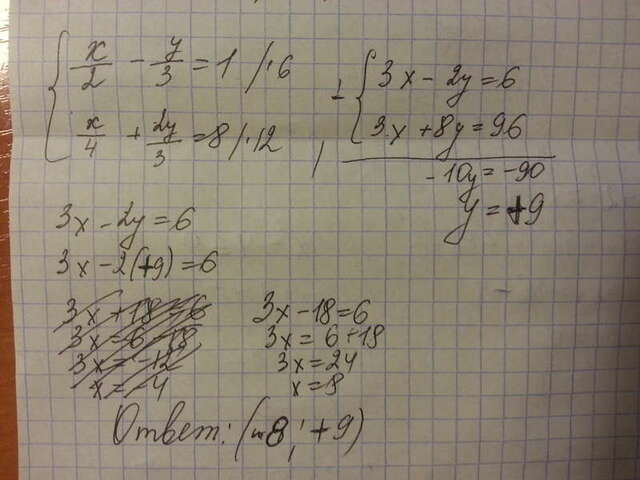 x/2 - y/3 = 1 /·6
x/4 + 2y/3 = 8 /·12,
3x - 2y = 6
3x + 8y = 96
-10y = -90
y = +9
3x - 2y = 6
3x - 2(+9) = 6
3x + 18 = 6
3x = 6 - 18
3x = -12
x = -4
3x - 18 = 6
3x = 6 + 18
3x = 24
x = 8
Ответ: (8; +9)